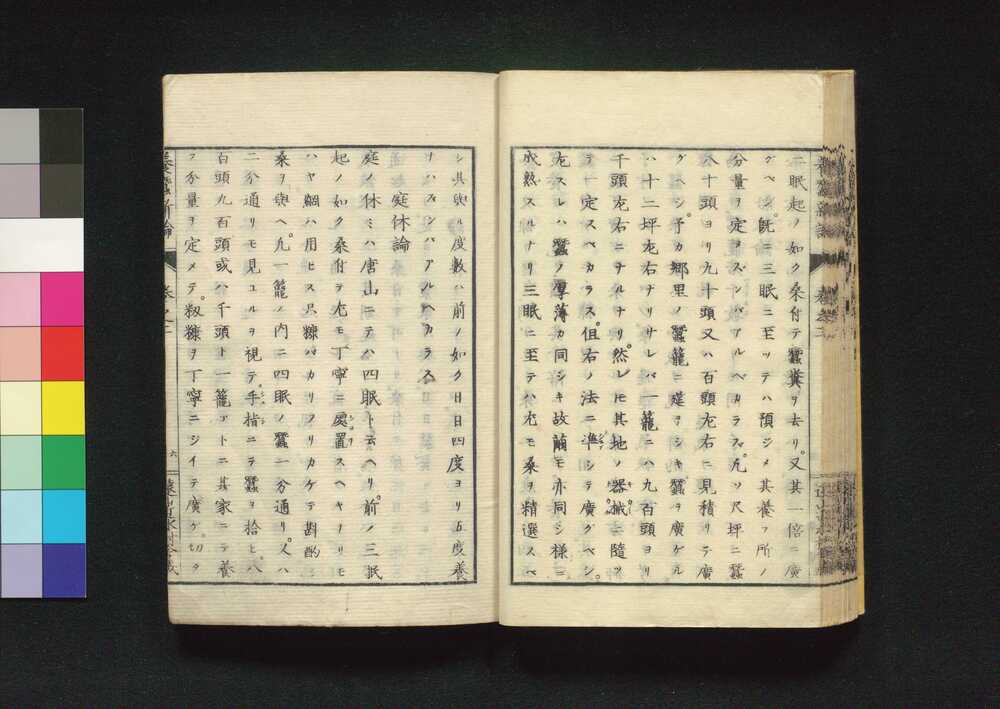 二眠起ノ如ク桑付テ蠶糞ヲ去リ又其一倍ニ廣
グベシ既ニ三眠ニ至ツテハ預ジメ其養フ所ノ
分量ヲ定メズンバアルベカラズ凡ソ尺坪ニ蠶
八十頭ヨリ九十頭又ハ百頭左右ニ見積リテ廣
グベシ予カ郷里ノ蠶籠ニ蠶ヲ廣ゲル
ハ十二坪左右ナリサレバ一籠ニハ九百頭ヨリ
千頭左右ニナルナリ然レ𪜈其地ノ器械ニ隨ツ
テ一定スベカラス但右ノ法ニ準シテ廣グベシ
左スレハ蠶ノ厚薄カ同シキ故繭モ亦同シ様ニ
成熟スルナリ三眠ニ至テハ尤モ桑ヲ精選スベ
シ其與ル度數ハ前ノ如ク日日四度ヨリ五度養
ナハズンバアルヘカラス
庭休論
庭ノ休ミハ唐山ニテハ四眠ト云ヘリ前ノ三眠
起ノ如ク桑付ケ尤モ丁寧ニ處置スヘキナリモ
ハヤ網ハ用ヒス只糠バカリフリカケテ斟酌シ
桑ヲ與ヘ凡一籠ノ内ニ四眠ノ蠶一分通リ又ハ
二分通リモ見ユルヲ視テ手指ニテ蠶ヲ拾ヒ八
百頭九百頭或ハ千頭ト一籠ゴトニ其家ニテ養
フ分量ヲ定メテ籾糠ヲ丁寧ニシイテ廣ゲ切タ
養蠶新論
卷之二
六